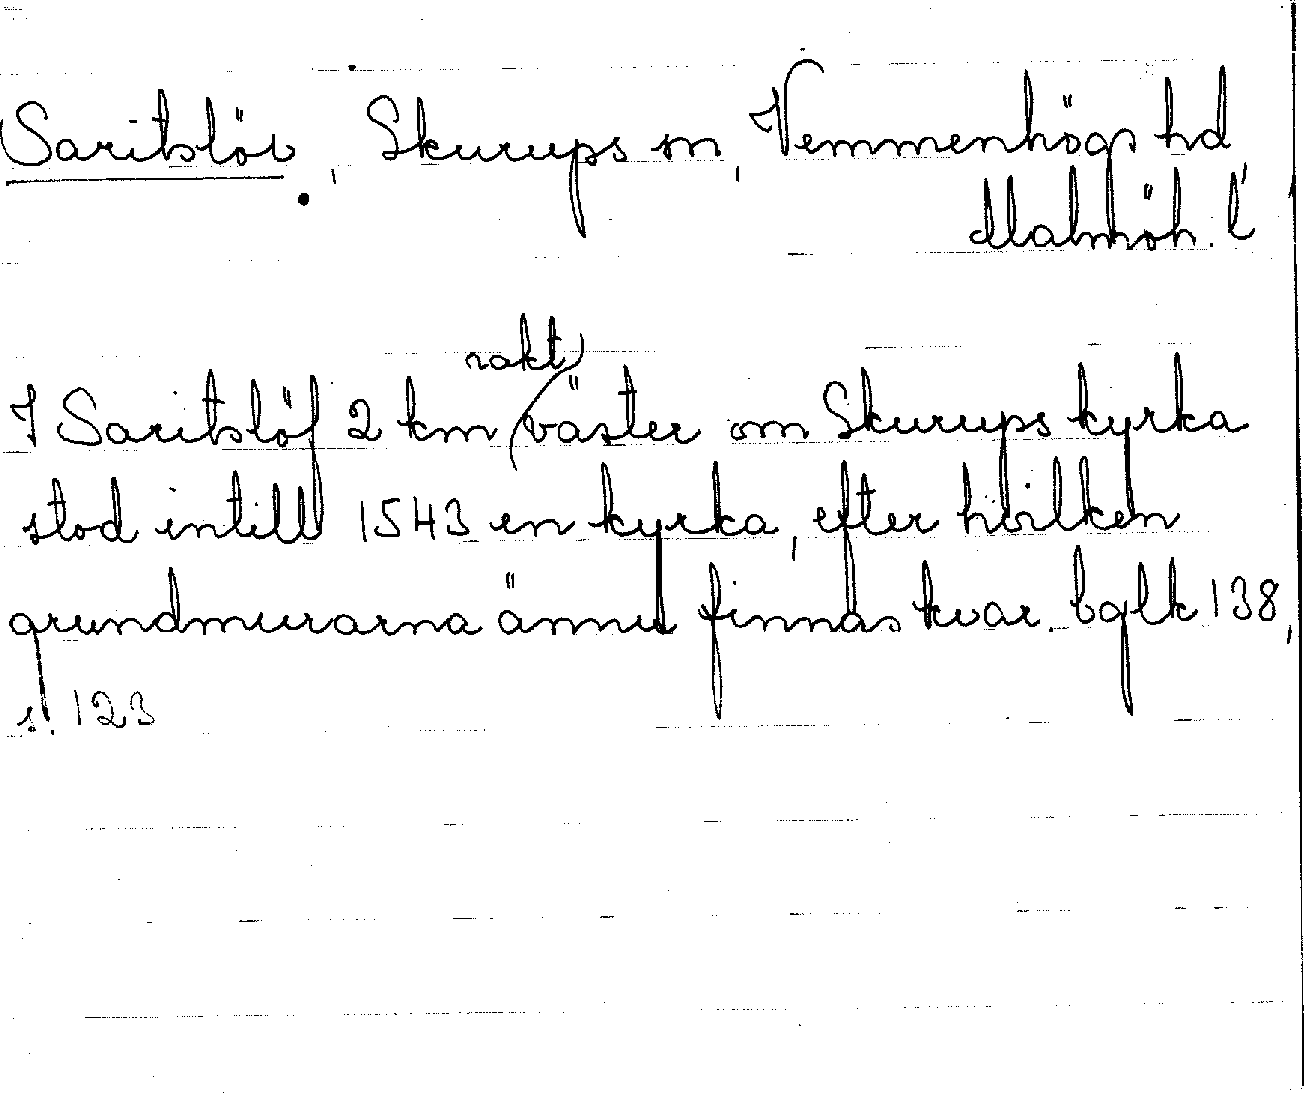 Saritslöv, Skurups sn, Vemmenhögs hd,
Malmöh. l
I Saritslöf 2 km rakt väster om Skurups kyrka
stod intill 1543 en kyrka, efter hvilken
grundmurarna ännu finnas kvar. bglk 138,
s. 123